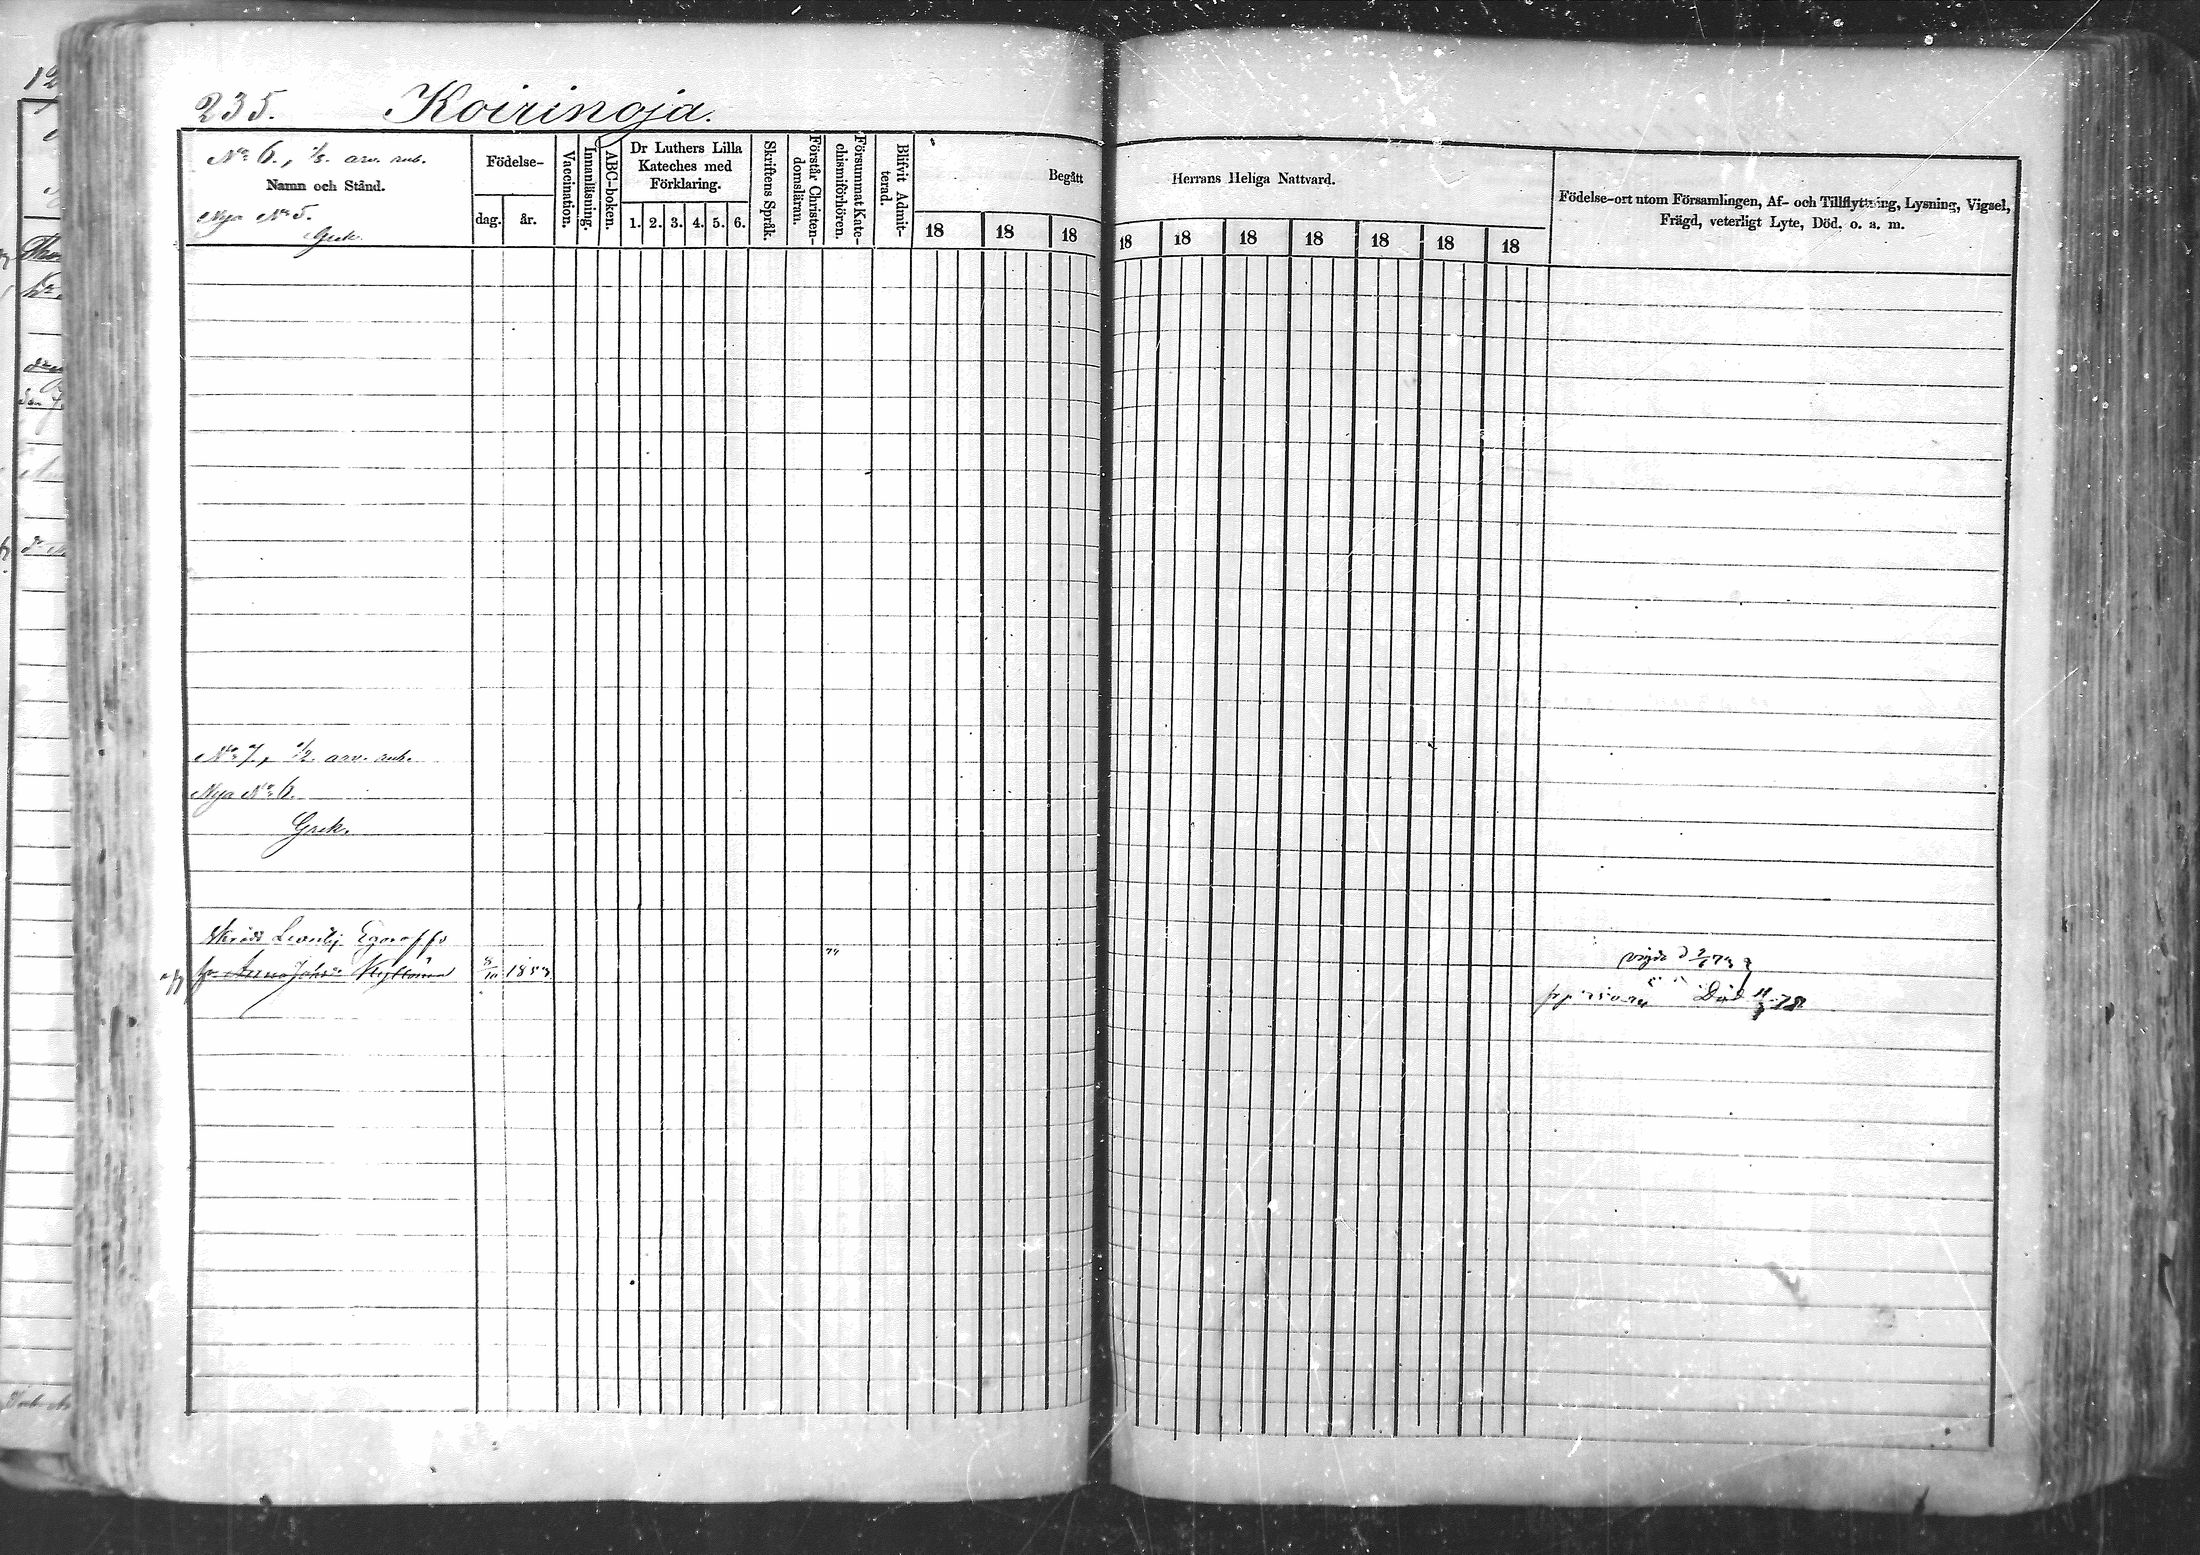 235. Koirinoja.
No 6., 1/8. arv. rub.
Namn och Stånd.
Nya No 5.
Grek.
Födelse-
dag. år.
Vaccination.
Innanläsning.
ABC-boken.
Dr Luthers Lilla
Kateches med
Förklaring.
1. 2. 3. 4. 5. 6.
Skriftens Språk.
Förstår Christen-
domsläran.
Försummat Kate-
chismiförhören.
Blifvit Admit-
terad.
Begått Herrans Heliga Nattvard.
18 18 18 18 18 18 18 18 18 18
Födelse-ort utom Församlingen, Af- och Tillflyttning, Lysning, Vigsel,
Frägd, veterligt Lyte, Död. o. s. m.
No 7., 1/2. arv. rub.
Nya No 6.
Grek.
Egoroff
Anna 1853
Död 78